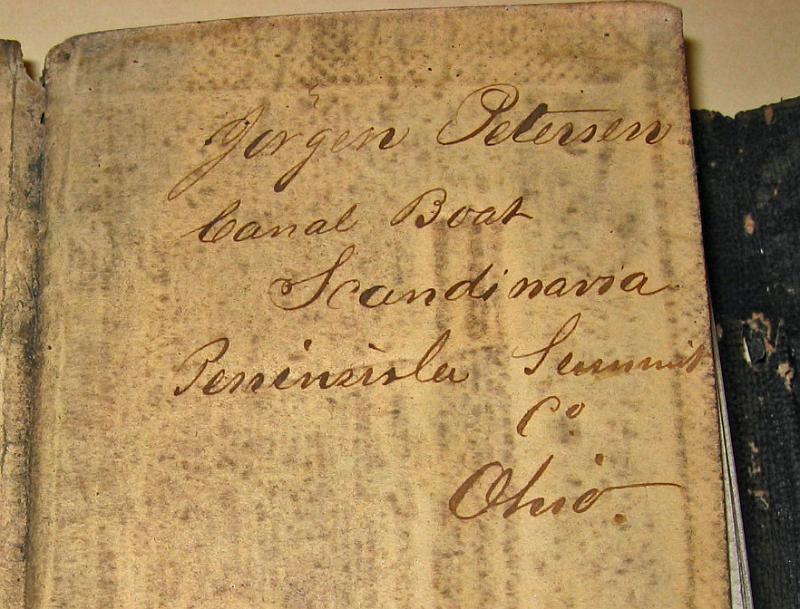 Jörgen Petersen
Canal Boat
Scandinavia
Peninsula Summit
Co
Ohio.